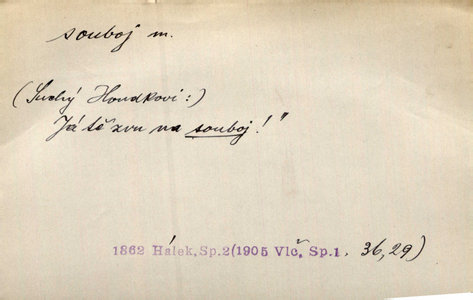 souboj m.
(Suchý Houdkovi:)
Já tě zvu na souboj!"
1862 Hálek, Sp.2(1905 Vlč. Sp.1. 36,29)